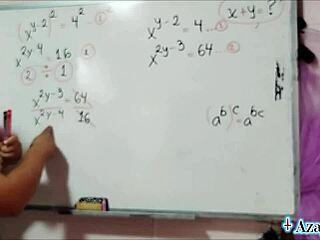 (x^{y-2})^2 = 4^2 ...①
x^{2y-4} = 16 ①
② ÷ ①
x^{2y-3} / x^{2y-4} = 64 / 16
x^{y-2} = 4 ...①
x^{2y-3} = 64 ...②
x+y=?
(a^b)^c = a^{bc}
+ Aza